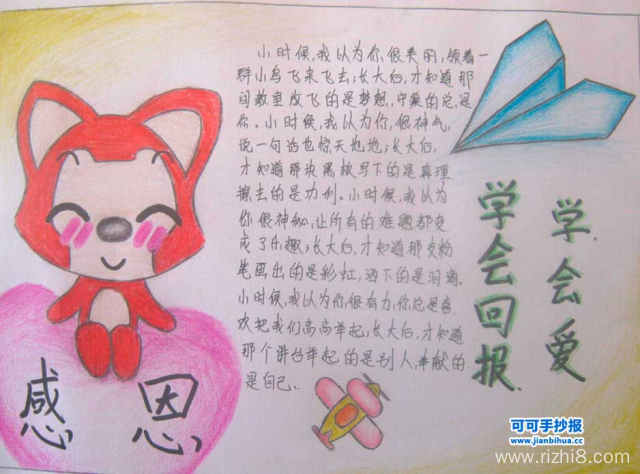 小时候,我以为你很美丽,领着一
群小鸟飞来飞去;长大后,才知道那
间教室放飞的是梦想,守巢的总是
你。小时候,我以为你,很神气,
说一句话也惊天动地;长大后,
才知道那块黑板写下的是真理
擦去的是功利。小时候,我以为
你很神秘,让所有的难题都变
成了乐趣;长大后,才知道那支粉
笔画出的是彩虹,洒下的是泪滴。
小时候,我以为你很有力,你总是喜
欢把我们高高举起;长大后,才知道
那个讲台举起的是别人,奉献的
是自己.
学会回报.
学.会爱
感恩
可可手抄报
www.jianbihua.cc
www.rizhi8.com